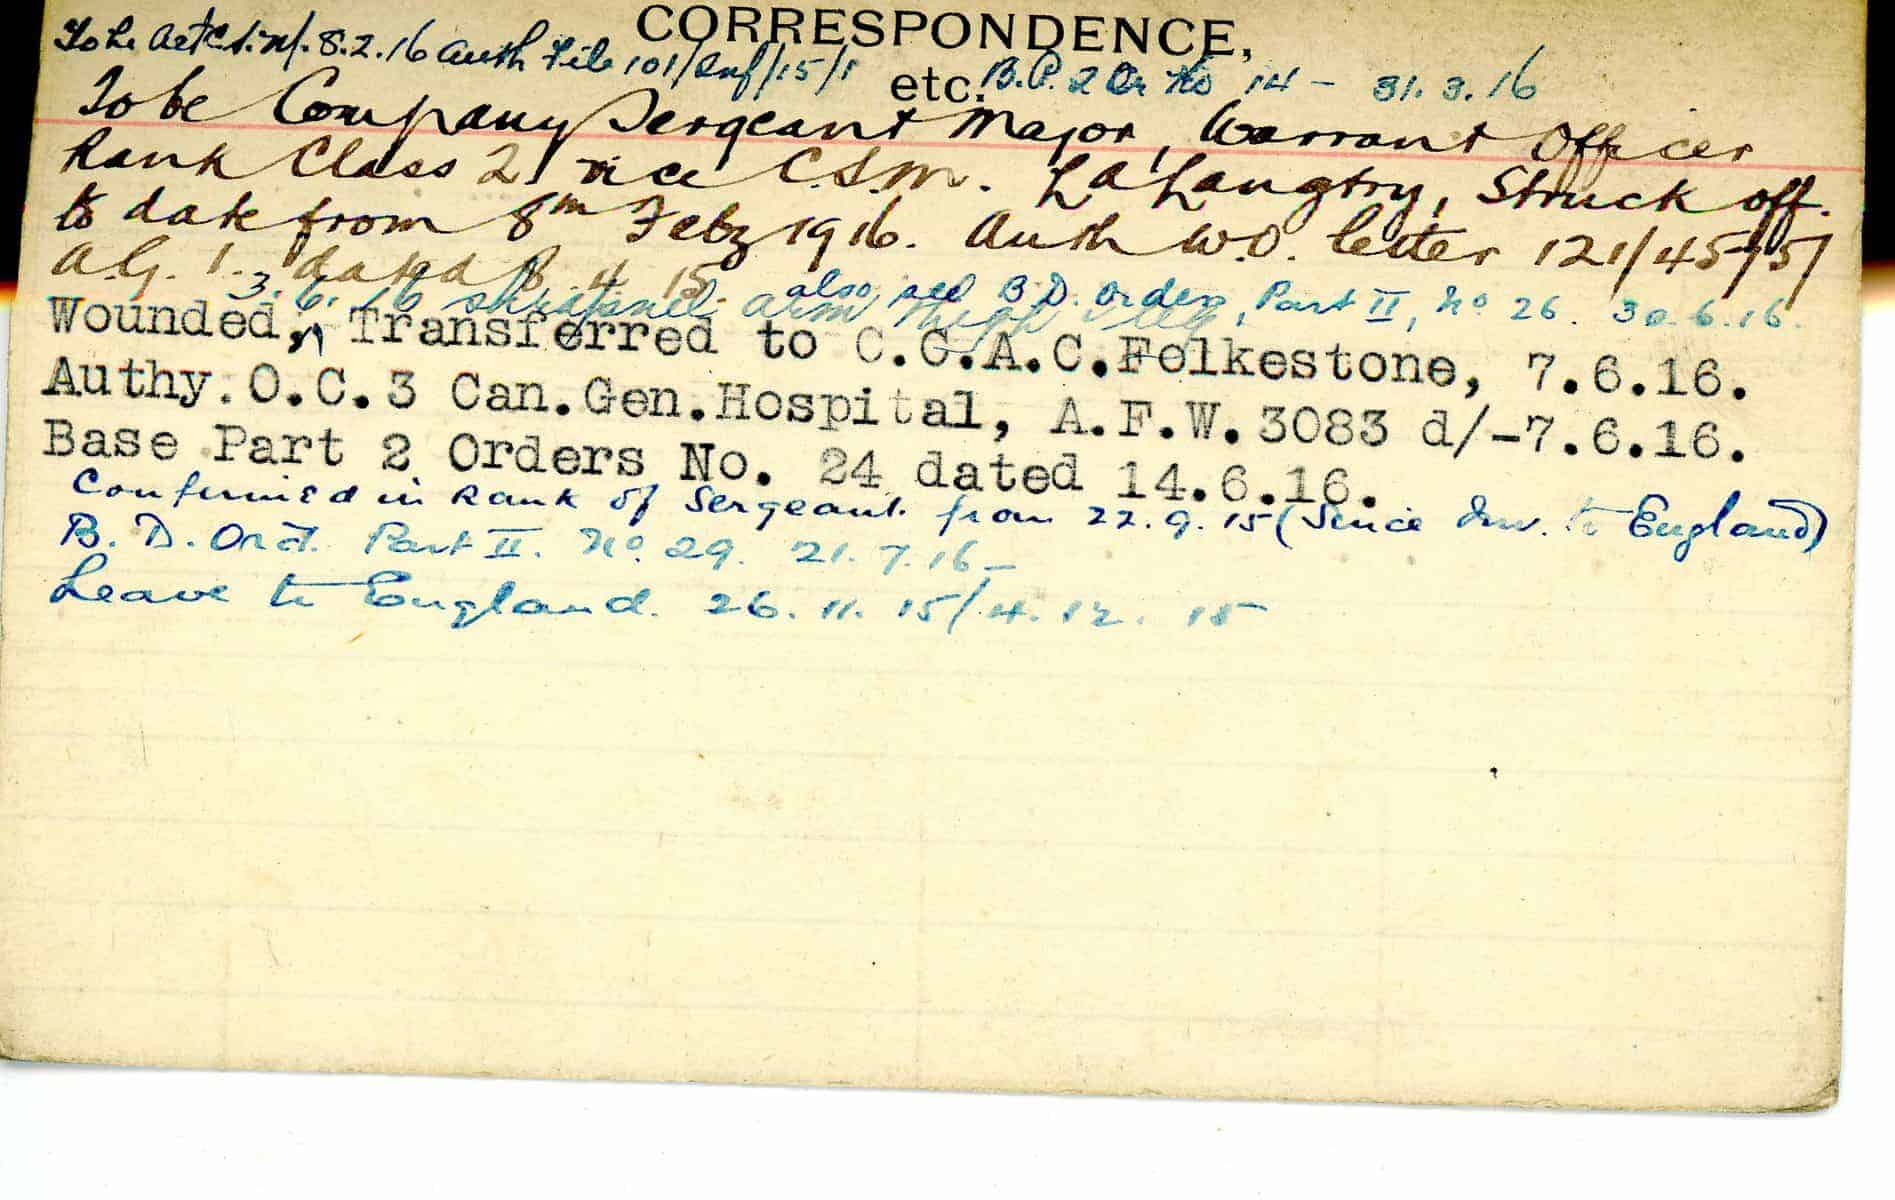 CORRESPONDENCE,
To be Act C.S.M. 8.2.16 Auth File 101/Inf/15/1
etc. B.P. 2 Or No 14 - 31.3.16
To be Company Sergeant Major, Warrant Officer
Rank Class 2, vice C.S.M. Langtry, Struck off.
to date from 8th Feby 1916. Auth W.O. letter 121/4575/
A.G. 1. dated 8.4.15. also see B.D. Orders, Part II, No 26. 30.6.16.
3.6.16 shrapnel arm thigh & leg
Wounded, Transferred to C.C.A.C.Folkestone, 7.6.16.
Authy.O.C.3 Can.Gen.Hospital, A.F.W.3083 d/-7.6.16.
Base Part 2 Orders No. 24 dated 14.6.16.
Confirmed in Rank of Sergeant from 22.9.15 (Since Inv. to England)
B.D. Ord. Part II. No. 29. 21.7.16 -
Leave to England. 26.11.15/4.12.15